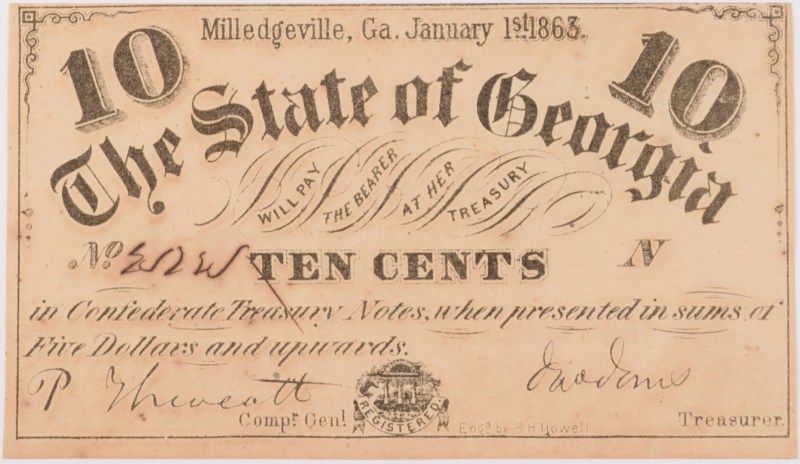 Milledgeville, Ga. January 1st. 1863.
10 10
The State of Georgia
WILL PAY THE BEARER AT HER TREASURY
No. TEN CENTS N
in Confederate Treasury Notes, when presented in sums of
Five Dollars and upwards.
P Thweatt Jno Jones
REGISTERED.
Compt. Genl. Engd. by R. H. Howell Treasurer.